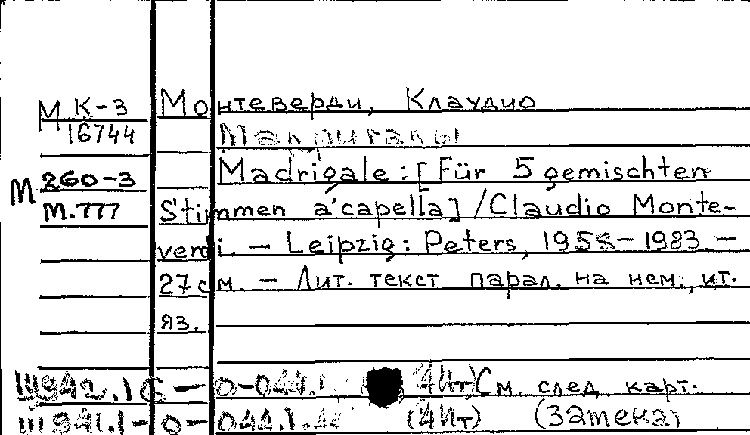 М К-3 Монтеверди, Клаудио
16744 Мадригалы
М 260-3 Madrigale : [Für 5 gemischten
М.777 Stimmen a'capella] / Claudio Monte-
verdi. — Leipzig : Peters, 1958-1983. —
27 см. — Лит. текст парал. на нем., ит.
яз.
Ш942.1 6 - 0-044.1 4(Ит) См. след. карт.
Ш941.1-0-044.1 (4Ит) (Затека)